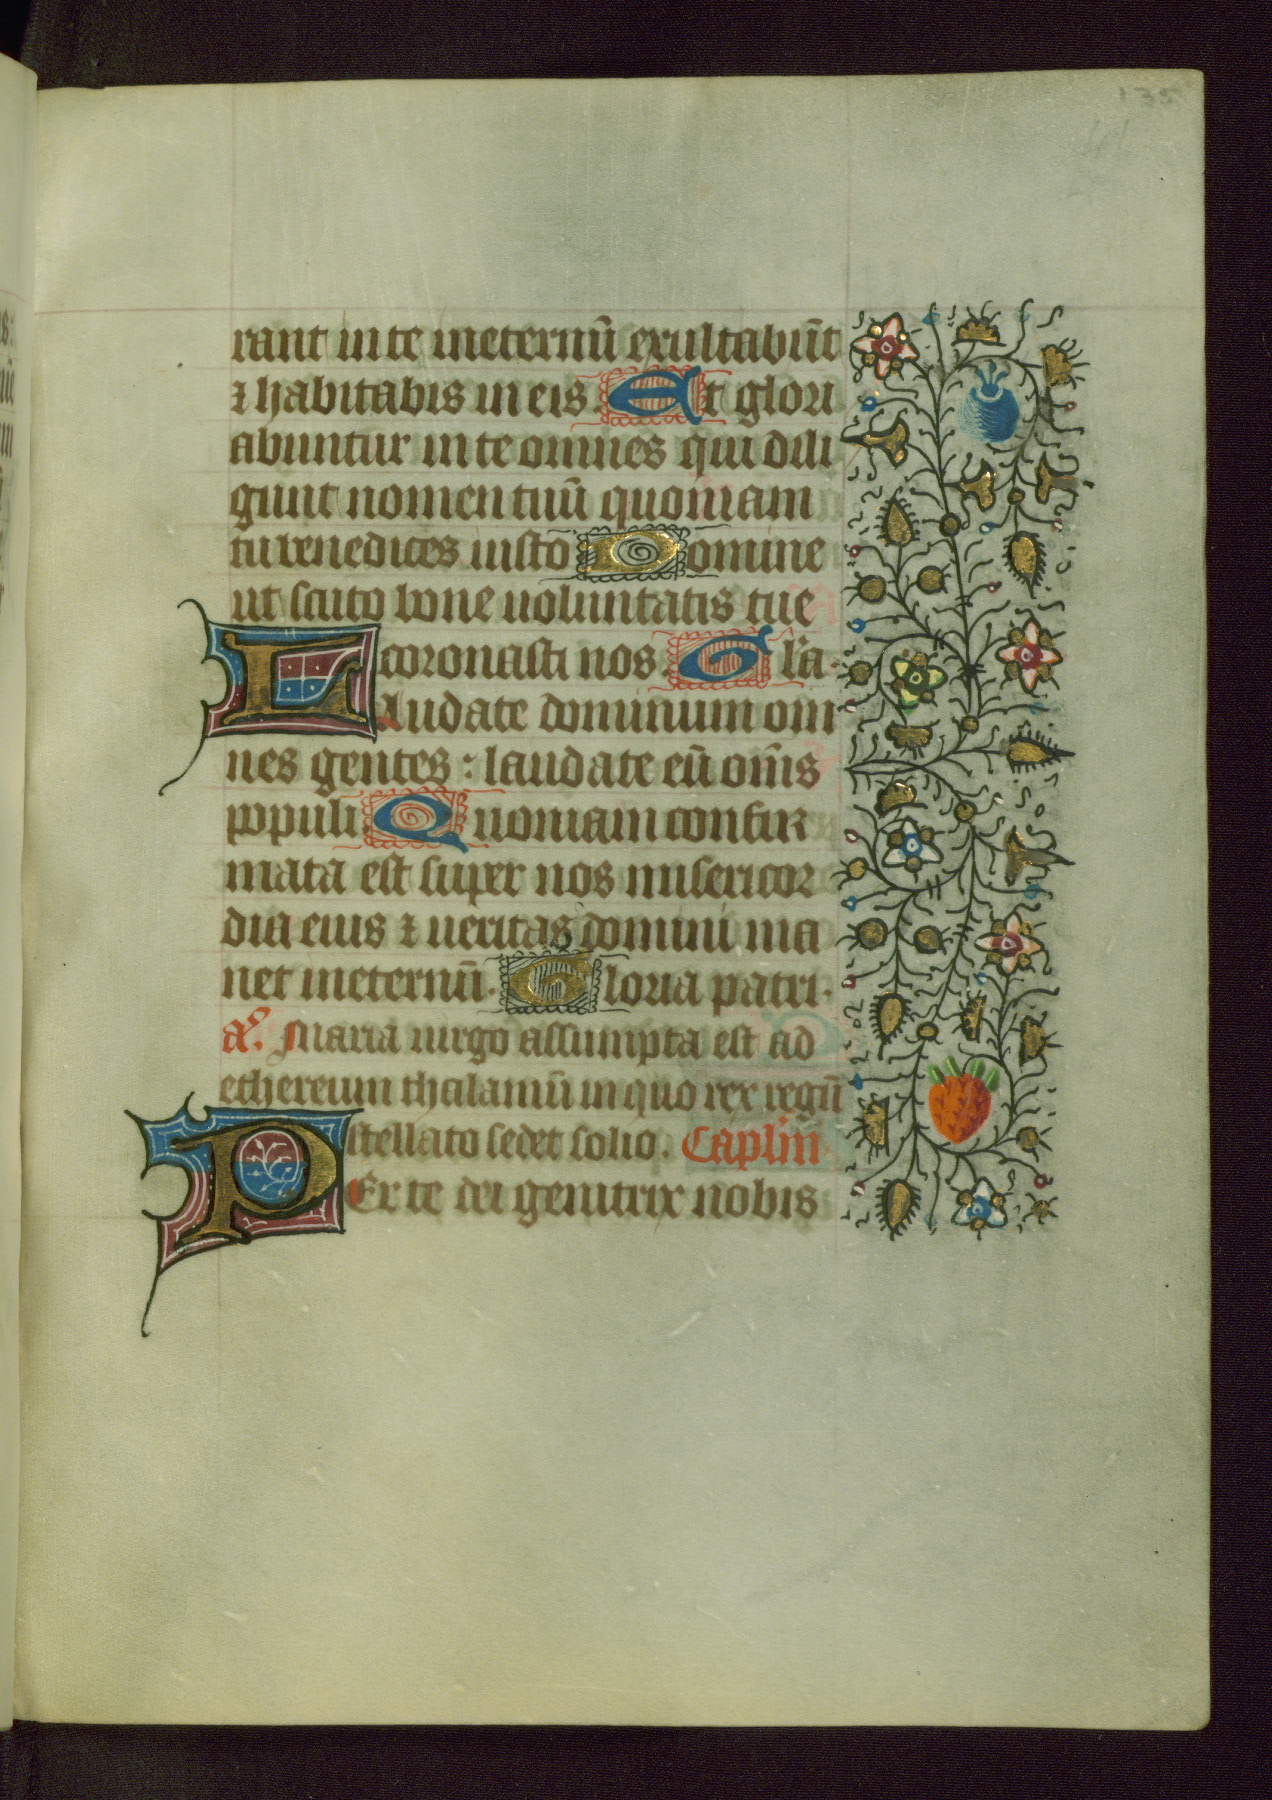 rant in te ineternū exultabūt
⁊ habitabis in eis. Et glori
abuntur in te omnes qui dili
giunt nomen tuū quoniam
tu benedices iusto Domine
ut scuto bone uoluntatis tue
coronasti nos. Gl'a.
Laudate dominum om
nes gentes : laudate eū om̄s
populi Quoniam confir
mata est super nos misericor
dia eius ⁊ ueritas domini ma
net ineternū. Gloria patri.
a°. Maria uirgo assumpta est ad
ethereum thalamū in quo rex regū
stellato sedet solio. Caplm̄
PEr te dei genitrix nobis
135